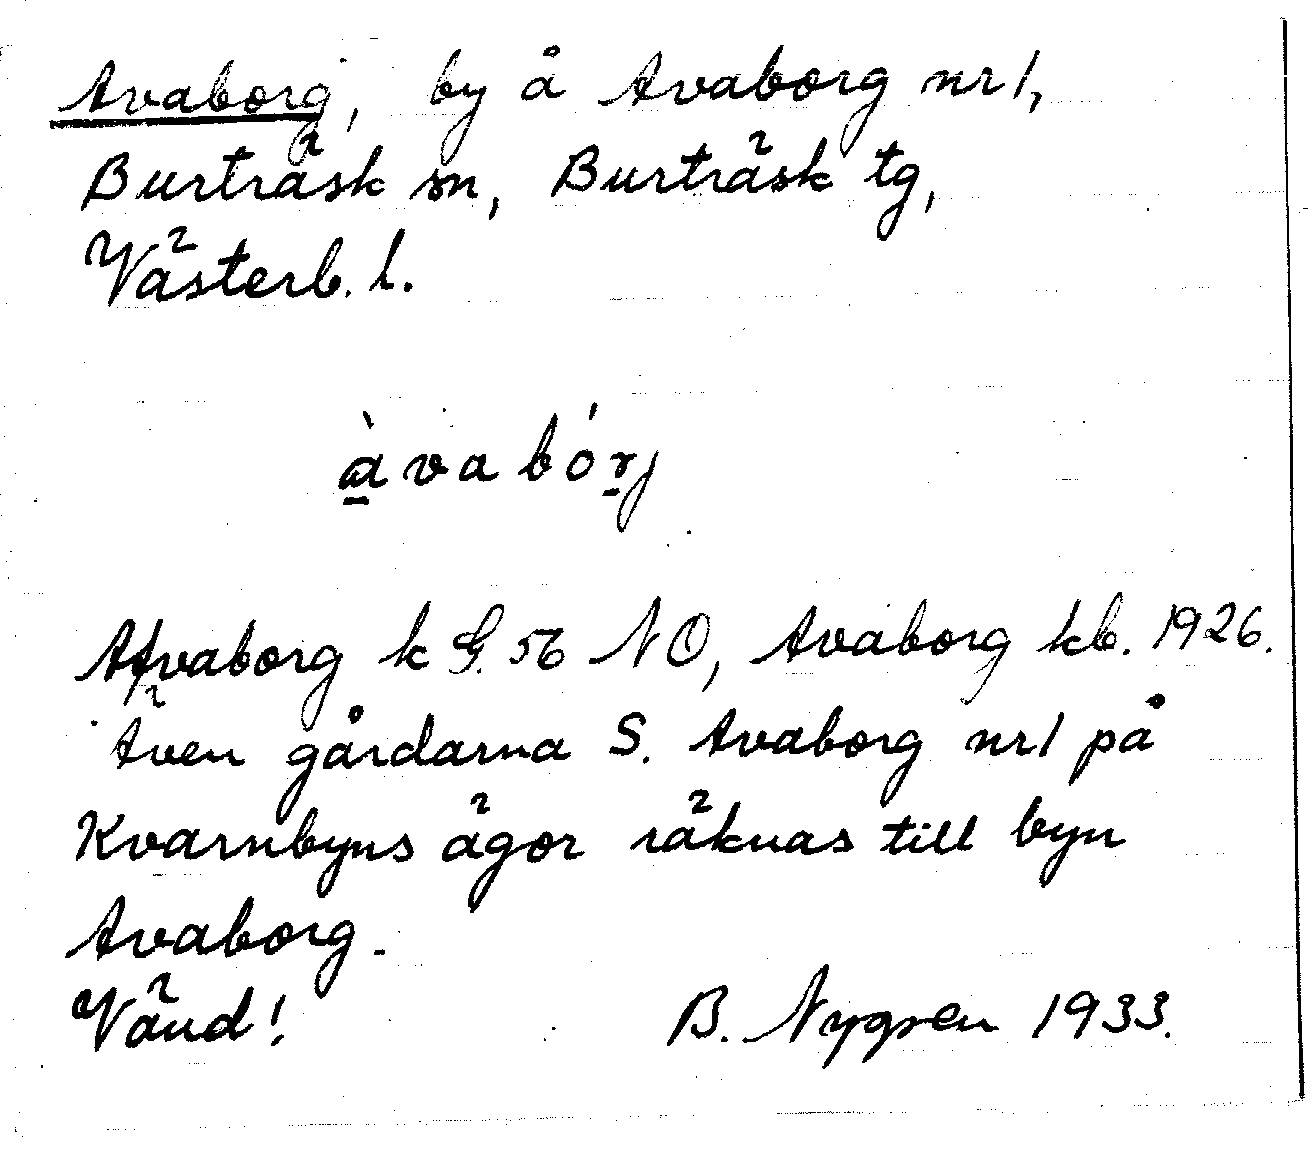 Avaborg, by å Avaborg nr 1,
Burträsk sn, Burträsk tg,
Västerb. l.
àvabórj
Afvaborg k G. 56 NO, Avaborg kb. 1926.
Även gårdarna S. Avaborg nr 1 på
Kvarnbyns ägor räknas till byn
Avaborg.
Vänd! B. Nygren 1933.